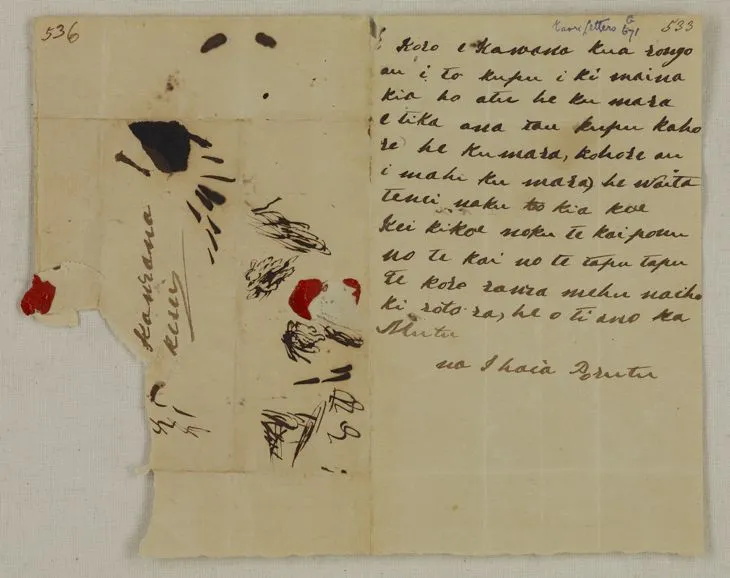 536
Kawana
Kerei
Maori letters G
671
533
E Koro e Kawana kua rongo
au i to kupu i ki maina
kia ho atu he ku mara
e tika ana tau kupu kaho
re he Ku mara, kohore au
i mahi ku mara, he Waita
tenei naku to kia koe
Kei kikoe noku te kai ponu
no te kai no te tapu tapu
te koro rawra mehu naiho
ki roto ra, he o ti ano ka
Mutu
na Ihaia Porutu